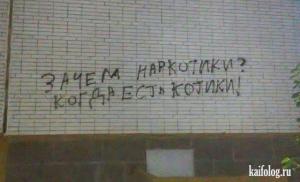 ЗАЧЕМ НАРКОТИКИ?
КОГДА ЕСТЬ КОТИКИ!
kaifolog.ru